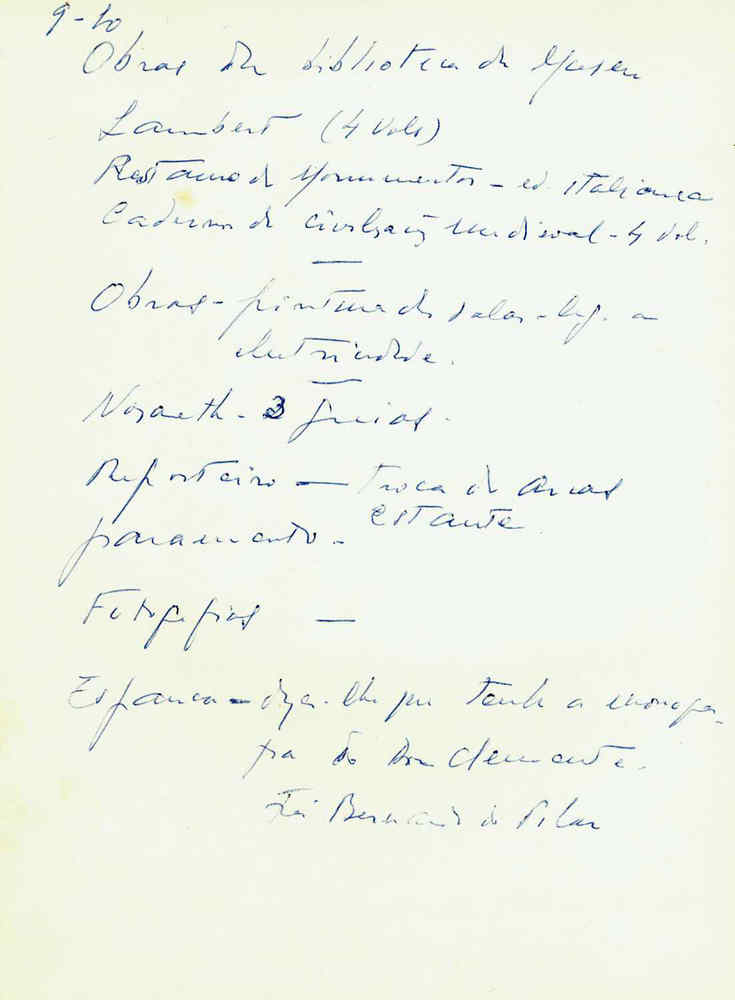 9-10
Obras da biblioteca do Museu
Lambert (4 vols)
Restauro de Monumentos - ed. italiana
Cadernos de civilização medieval - 4 vol.
Obras - pintura das salas - lig. a
eletricidade.
Nazareth - 3 guias.
Reposteiro — troca de arcas
estante
paramento -
Fotografias —
Espanca - dizer-lhe que tenho a monogra-
fia do Dom Clemente.
Frei Bernardo do Pilar